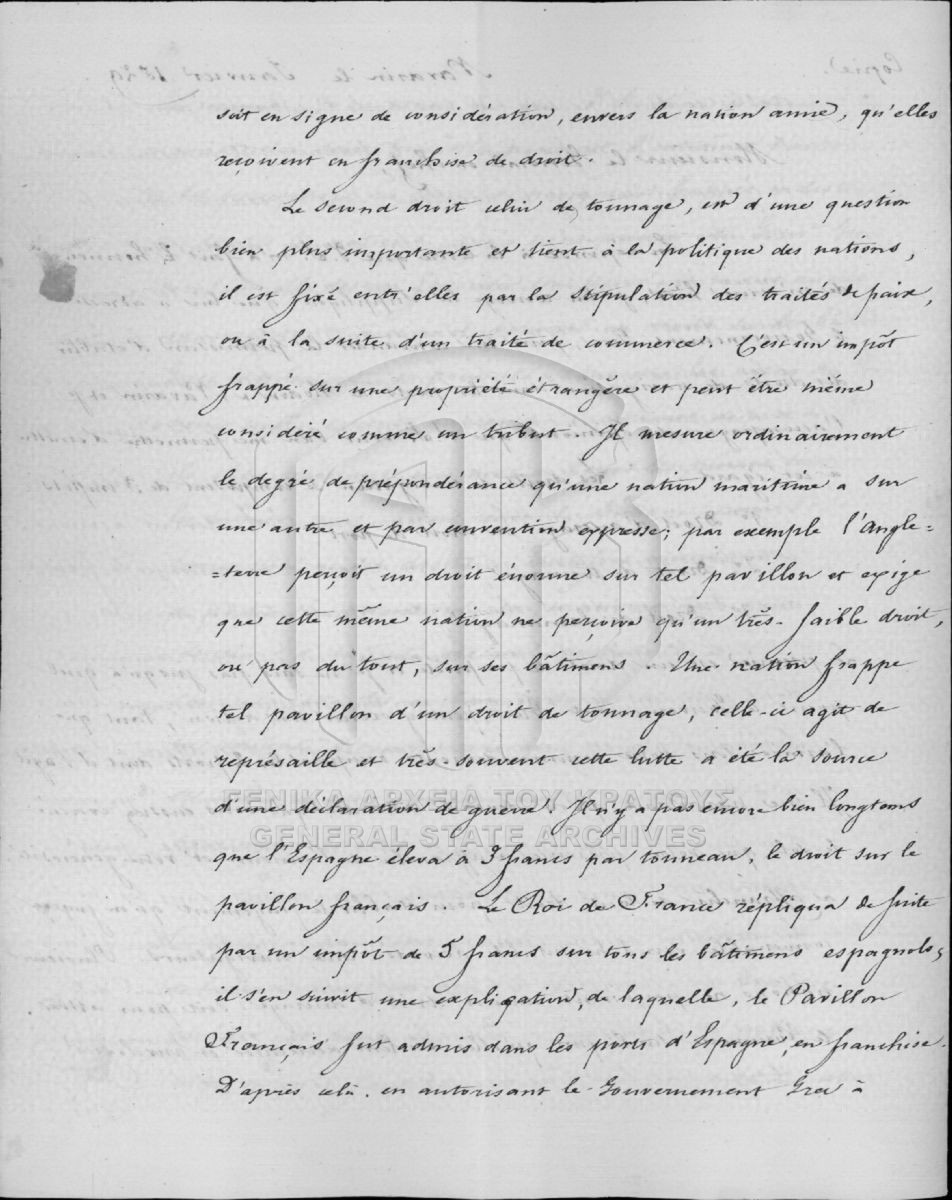 soit en signe de considération, envers la nation amie, qu'elles
reçoivent en franchise de droit.
Le second droit celui de tonnage, est d'une question
bien plus importante et tient à la politique des nations,
il est fixé entr'elles par la stipulation des traités de paix,
ou à la suite d'un traité de commerce. C'est un impôt
frappé sur une propriété étrangère et peut être même
considéré comme un tribut. Il mesure ordinairement
le degré de prépondérance qu'une nation maritime a sur
une autre et par convention expresse; par exemple l'Angle=
=terre perçoit un droit énorme sur tel pavillon et exige
que cette même nation ne perçoive qu'un très-faible droit,
ou pas du tout, sur ses bâtimens. Une nation frappe
tel pavillon d'un droit de tonnage, celle-ci agit de
représaille et très-souvent cette lutte a été la source
d'une déclaration de guerre. Il n'y a pas encore bien longtems
ΓΕΝΙΚΑ ΑΡΧΕΙΑ ΤΟΥ ΚΡΑΤΟΥΣ
GENERAL STATE ARCHIVES
que l'Espagne éleva à 3 francs par tonneau, le droit sur le
pavillon français. Le Roi de France répliqua de suite
par un impôt de 5 francs sur tous les bâtimens espagnols,
il s'en suivit une explication, de laquelle, le Pavillon
Français fut admis dans les ports d'Espagne, en franchise.
D'après celà, en autorisant le Gouvernement Grec à